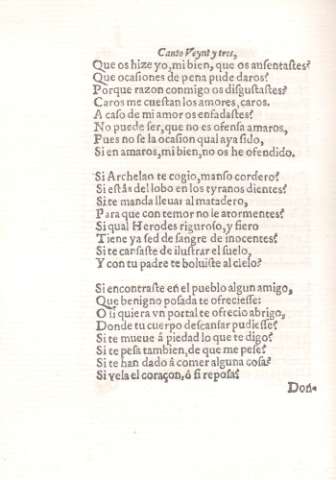 Canto Veynt y tres,
Que os hize yo, mi bien, que os ausentastes?
Que ocasiones de pena pude daros?
Porque razon conmigo os disgustastes?
Caros me cuestan los amores, caros.
A caso de mi amor os enfadastes?
No puede ser, que no es ofensa amaros,
Pues no se la ocasion qual aya sido,
Si en amaros, mi bien, no os he ofendido.
Si Archelan te cogio, manso cordero?
Si estás del lobo en los tyranos dientes?
Si te manda lleuar al matadero,
Para que con temor no le atormentes?
Si qual Herodes riguroso, y fiero
Tiene ya sed de sangre de inocentes?
Si te cansaste de ilustrar el suelo,
Y con tu padre te boluiste al cielo?
Si encontraste en el pueblo algun amigo,
Que benigno posada te ofreciesse:
O si quiera vn portal te ofrecio abrigo,
Donde tu cuerpo descansar pudiesse?
Si te mueue á piedad lo que te digo?
Si te pesa tambien, de que me pese?
Si te han dado á comer alguna cosa?
Si vela el coraçon, ó si reposa?
Don-